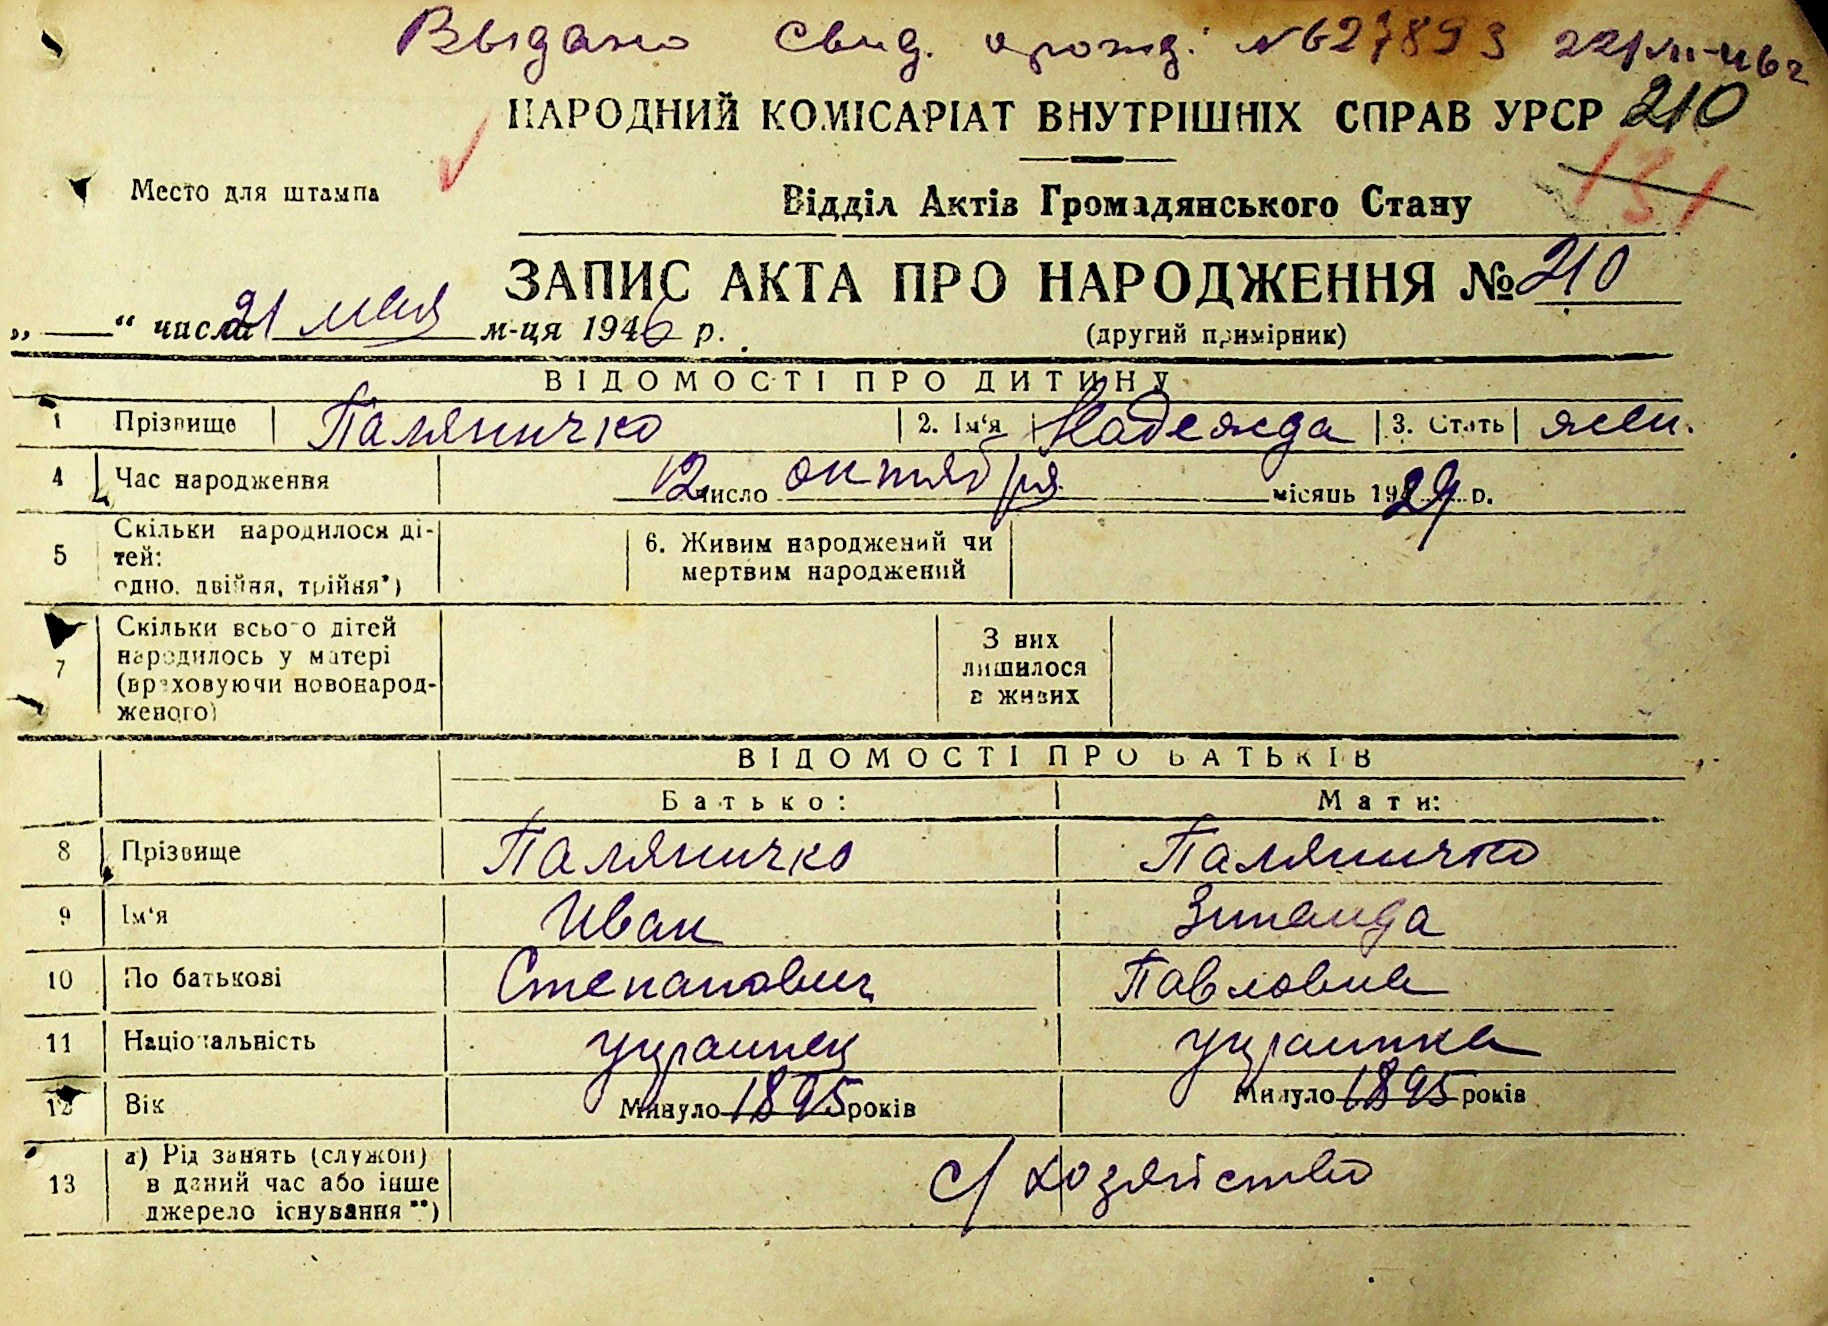 Выдано свид. о рожд. № 627893 22/VI-46 г
НАРОДНИЙ КОМІСАРІАТ ВНУТРІШНІХ СПРАВ УРСР 210
Место для штампа
131
Відділ Актів Громадянського Стану
ЗАПИС АКТА ПРО НАРОДЖЕННЯ № 210
„ “ числа 21 мая м-ця 1946 р.
(другий примірник)
ВІДОМОСТІ ПРО ДИТИНУ
1 Прізвище Паляничко 2. Ім‘я Надежда 3. Стать жен.
4 Час народження 12 число октября місяць 1929 р.
5 Скільки народилося дітей: одно, двійня, трійня*) 6. Живим народжений чи мертвим народжений
7 Скільки всього дітей народилось у матері (враховуючи новонародженого) З них лишилося в живих
ВІДОМОСТІ ПРО БАТЬКІВ
Батько: Мати:
8 Прізвище Паляничко Паляничко
9 Ім‘я Иван Зинаида
10 По батькові Степанович Павловна
11 Національність украинец украинка
12 Вік Минуло 1895 років Минуло 1895 років
13 а) Рід занять (служби) в даний час або інше джерело існування**) с/хозяйство